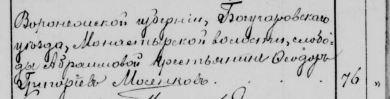 Воронежской губернiи, Богучаровскаго
уѣзда, Монастырской волости, слобо-
ды Абрамовой крестьянинъ Ѳеодоръ
Григорiевъ Мосенковъ. 76 "